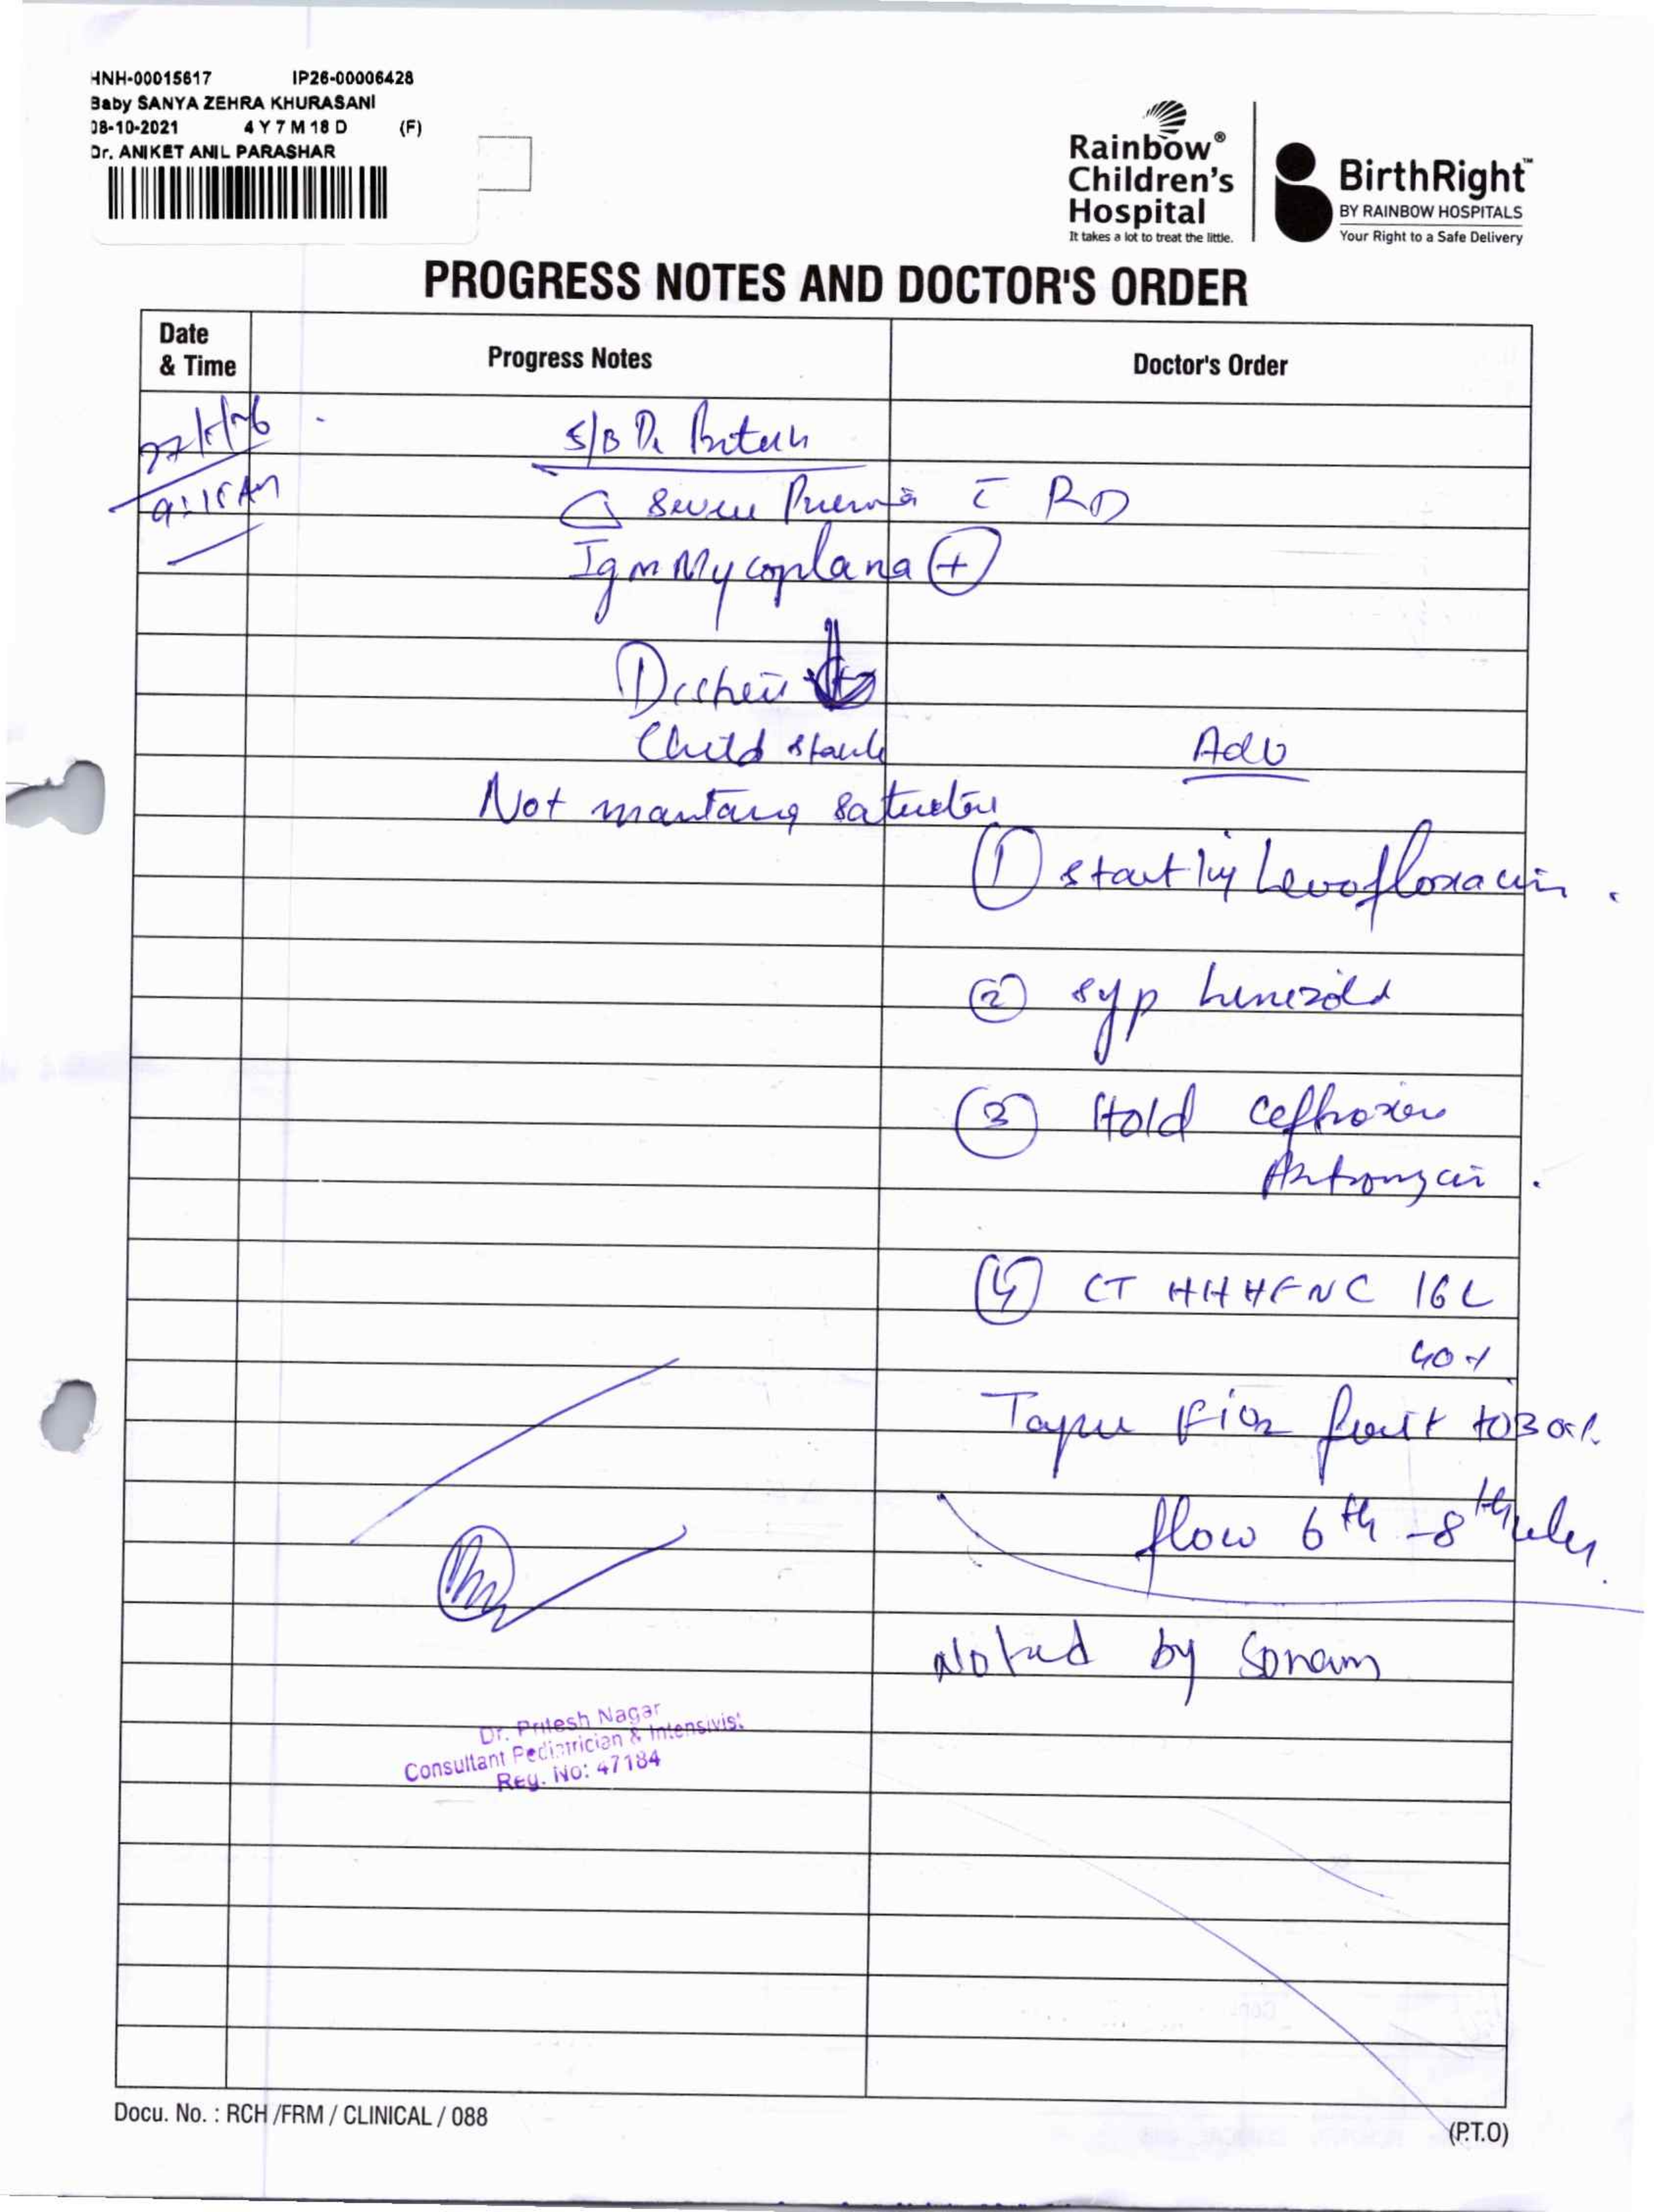 HNH-00015617 IP26-00006428
Baby SANYA ZEHRA KHURASANI
08-10-2021 4 Y 7 M 18 D (F)
Dr. ANIKET ANIL PARASHAR
Rainbow®
Children's
Hospital
It takes a lot to treat the little.
BirthRight™
BY RAINBOW HOSPITALS
Your Right to a Safe Delivery
PROGRESS NOTES AND DOCTOR'S ORDER
Date
& Time
Progress Notes
Doctor's Order
27/5/26
9:15 AM
S/B Dr
△ Severe c̄ RD
IgM Mycoplana (+)
Child
Adv
Not saturation
① start Inj Levofloxacin.
② syp Linezolid
③ Hold
④ CT HHHFNC 16L
40%
Taper FiO2 first to 30%.
flow 6th - 8th
Noted by Sonam
Dr. Pritesh Nagar
Consultant Pediatrician & Intensivist
Reg. No: 47184
Docu. No. : RCH /FRM / CLINICAL / 088
(P.T.O)